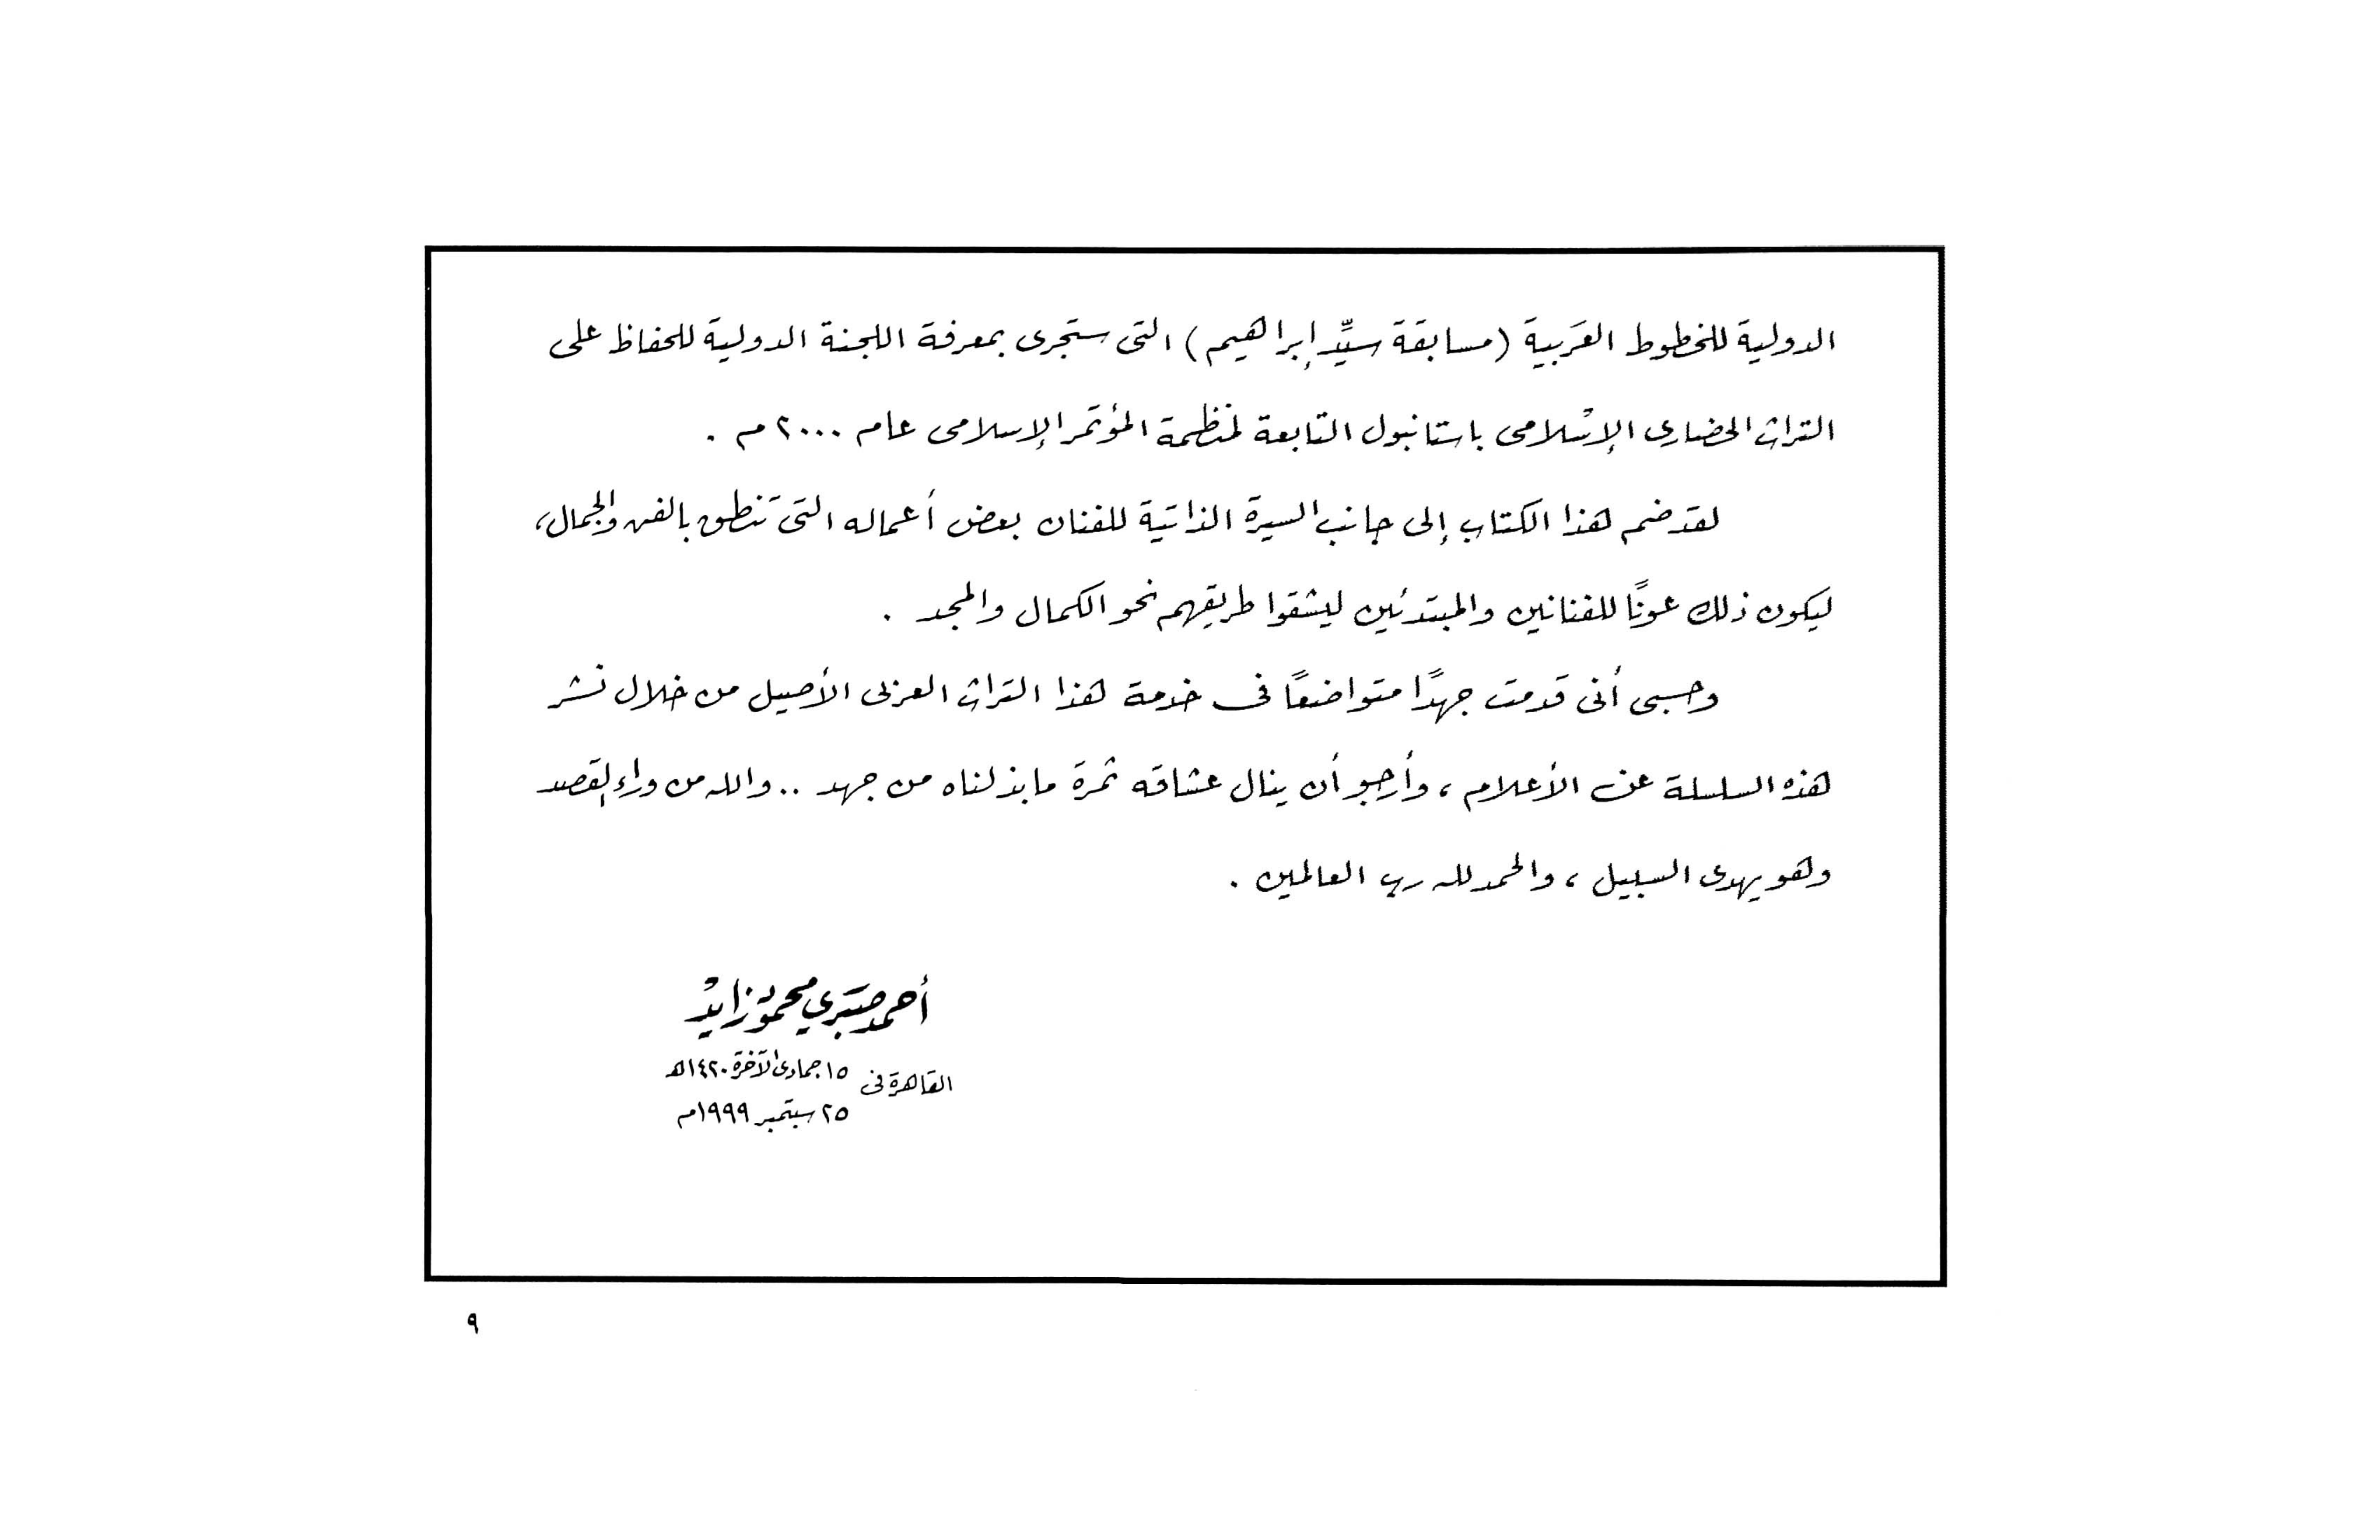 الدولية للخطوط العَربية (مسابقة سيِّد إبراهيم) التى ستجرى بمعرفة اللجنة الدولية للحفاظ على
التراث الحضارى الإسلامى باستانبول التابعة لمنظمة المؤتمر الإسلامى عام ٢٠٠٠م .
لقد ضم هذا الكتاب إلى جانب السيرة الذاتية للفنان بعض أعماله التى تنطق بالفن والجمال،
ليكون ذلك عونًا للفنانين والمبتدئين ليشقوا طريقهم نحو الكمال والمجد .
وحسبى أنى قدمت جهدًا متواضعًا فى خدمة هذا التراث العربى الأصيل من خلال نشر
هذه السلسلة عن الأعلام ، وأرجو أن ينال عشاقه ثمرة ما بذلناه من جهد .. والله من وراء القصد
وهو يهدى السبيل ، والحمد لله رب العالمين .
أحمد صبري محمود زايد
القاهرة فى ١٥ جمادى الآخرة ١٤٢٠هـ
٢٥ سبتمبر ١٩٩٩م
٩